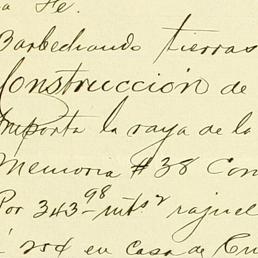 a Fe.
Barbechando tierras
Construcción de
Importa la raya de la
Memoria #38 Con
Por 343.98 mts2 rajuel
á 20¢ en Casa de